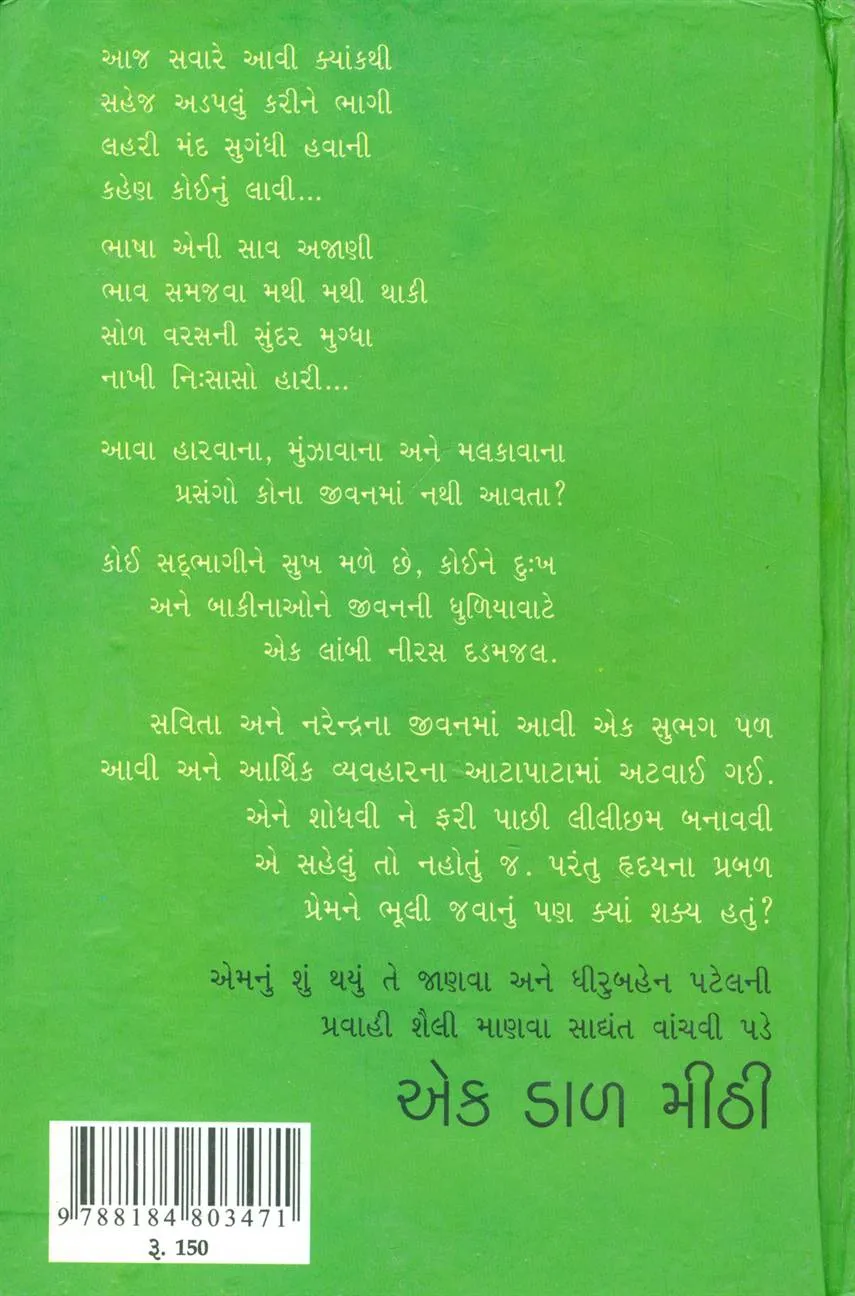 આજ સવારે આવી ક્યાંકથી
સહેજ અડપલું કરીને ભાગી
લહરી મંદ સુગંધી હવાની
કહેણ કોઈનું લાવી...
ભાષા એની સાવ અજાણી
ભાવ સમજવા મથી મથી થાકી
સોળ વરસની સુંદર મુગ્ધા
નાખી નિઃસાસો હારી...
આવા હારવાના, મુંઝાવાના અને મલકાવાના
પ્રસંગો કોના જીવનમાં નથી આવતા?
કોઈ સદ્ભાગીને સુખ મળે છે, કોઈને દુઃખ
અને બાકીનાઓને જીવનની ધુળિયાવાટે
એક લાંબી નીરસ દડમજલ.
સવિતા અને નરેન્દ્રના જીવનમાં આવી એક સુભગ પળ
આવી અને આર્થિક વ્યવહારના આટાપાટામાં અટવાઈ ગઈ.
એને શોધવી ને ફરી પાછી લીલીછમ બનાવવી
એ સહેલું તો નહોતું જ. પરંતુ હૃદયના પ્રબળ
પ્રેમને ભૂલી જવાનું પણ ક્યાં શક્ય હતું?
એમનું શું થયું તે જાણવા અને ધીરુબહેન પટેલની
પ્રવાહી શૈલી માણવા સાદ્યંત વાંચવી પડે
એક ડાળ મીઠી
9 788184 803471
રૂ. 150